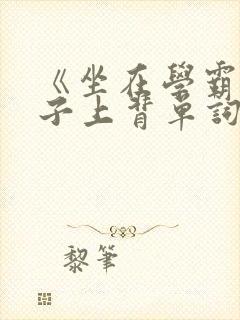 《坐在學霸
子上背單詞
黎筆